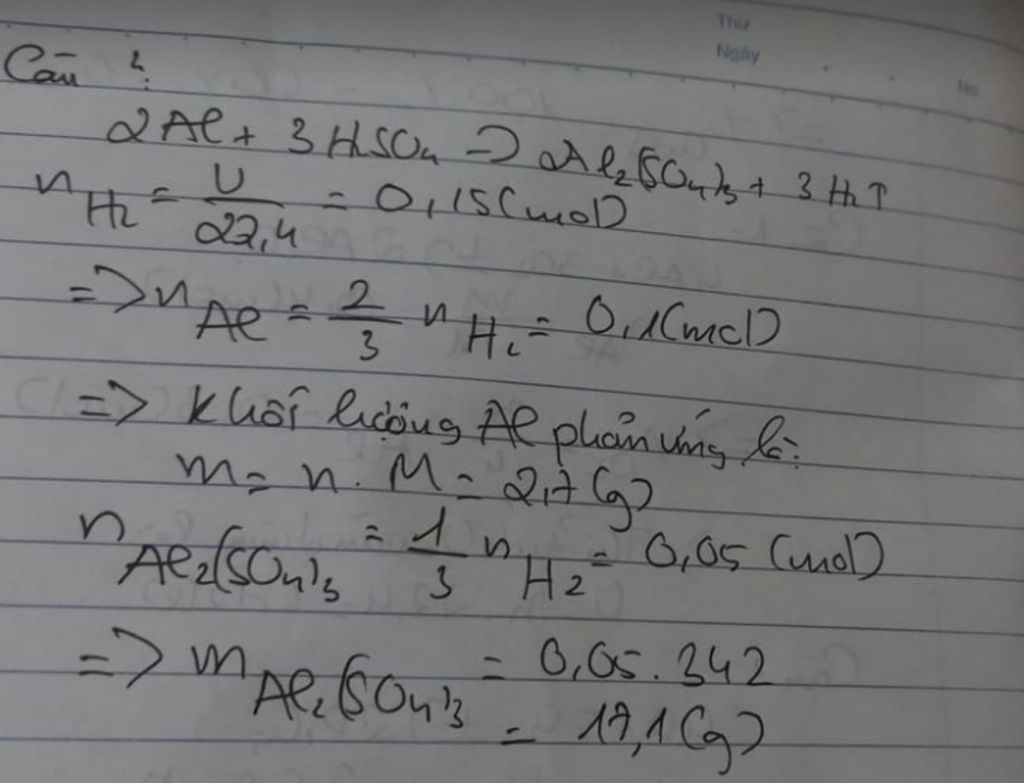 Thứ
Ngày
No.
Câu 2:
2Al + 3H2SO4 → 2Al2(SO4)3 + 3H2↑
nH2 = V/22,4 = 0,15 (mol)
=> nAl = 2/3 nH2 = 0,1 (mol)
=> Khối lượng Al phản ứng là:
m = n. M = 2,7 (g)
nAl2(SO4)3 = 1/3 nH2 = 0,05 (mol)
=> mAl2(SO4)3 = 0,05. 342
= 17,1 (g)